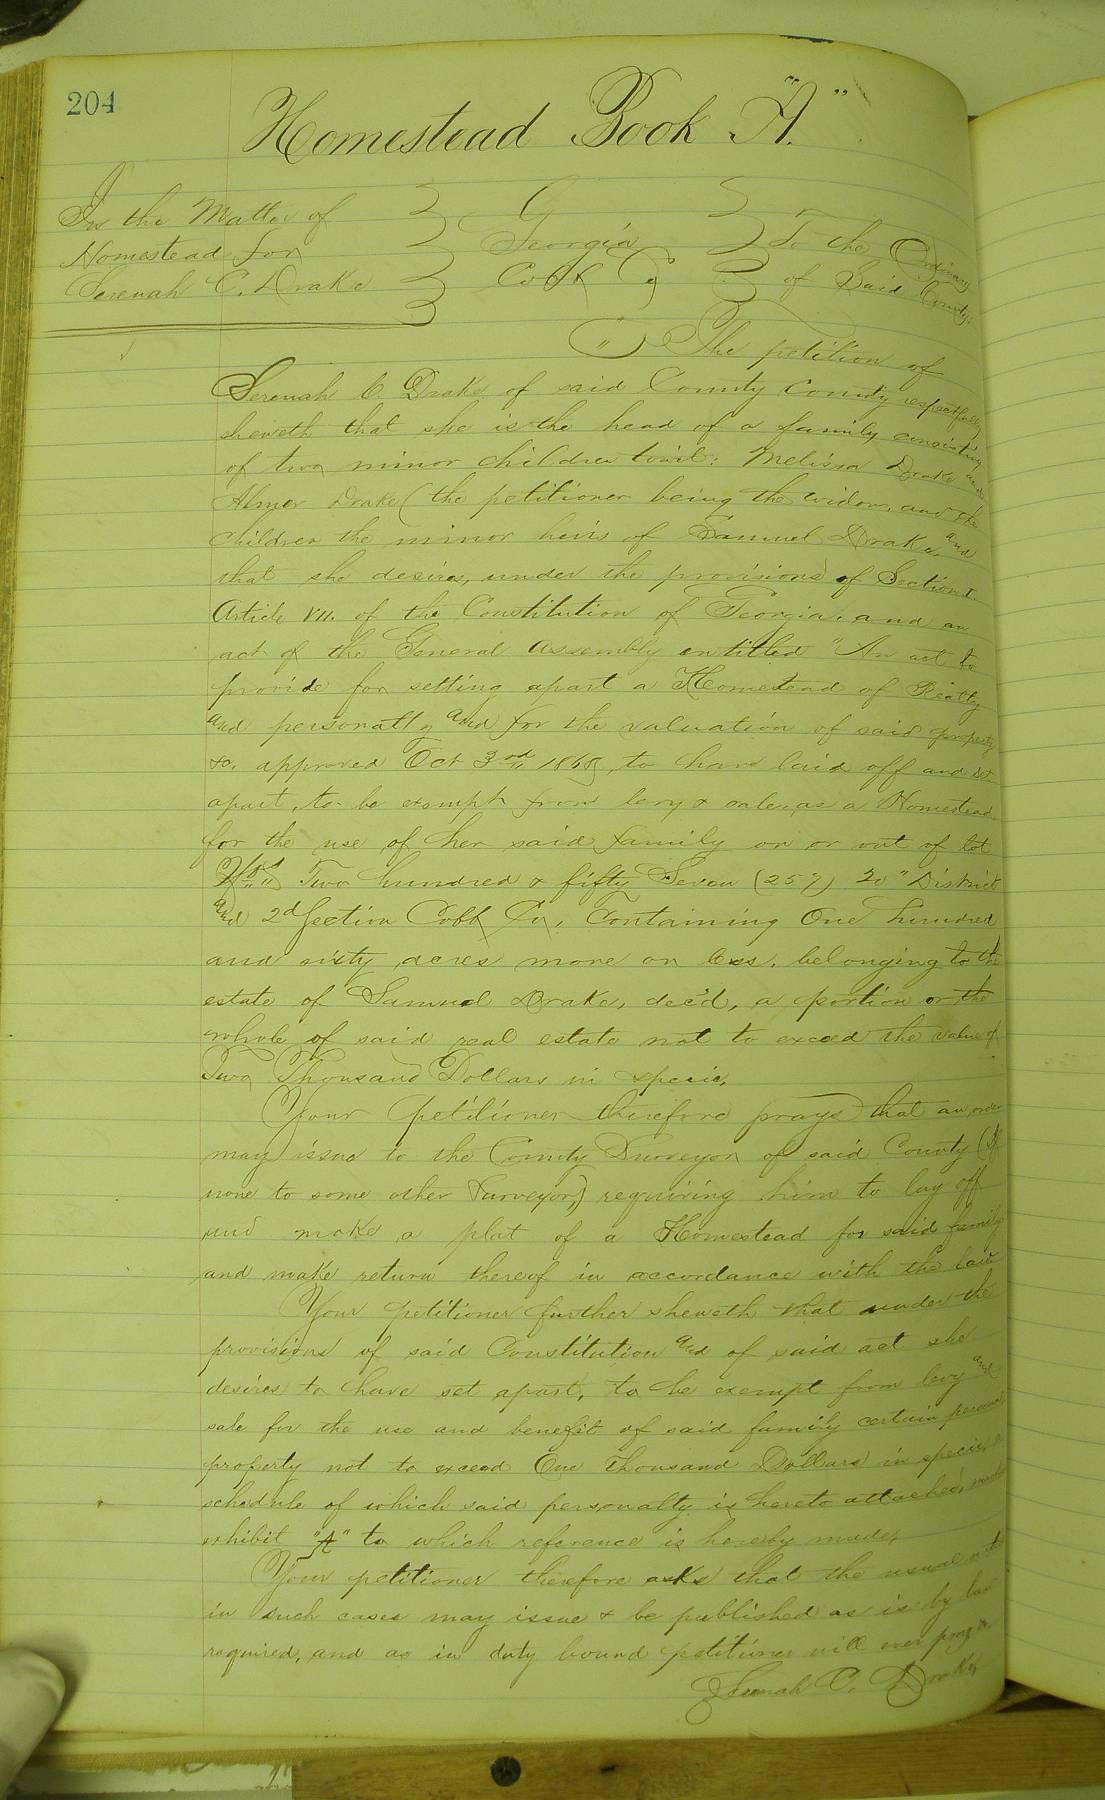 204
Homestead Book "A."
In the Matter of
Homestead for
Serenah C. Drake
Georgia
Cobb Co
To the Ordinary
of Said County:
" The petition of
Serenah C. Drake of said County County respectfully
sheweth that she is the head of a family consisting
of two minor children towit: Melissa Drake and
Abner Drake (the petitioner being the widow, and the
children the minor heirs of Samuel Drake, and
that she desires, under the provisions of Section I.
Article VII. of the Constitution of Georgia. and an
act of the General Assembly entitled "An act to
provide for setting apart a Homestead of Realty
and personalty and for the valuation of said property
&c, approved Oct 3rd 1868, to have laid off and set
apart, to be exempt from levy & sale, as a Homestead
for the use of her said family on or out of lot
Two hundred & fifty Seven (257) 20" District
and 2d Section Cobb Co, Containing One hundred
and sixty acres more or less. belonging to the
estate of Samuel Drake, dec'd, a portion or the
whole of said real estate not to exceed the value of
Two Thousand Dollars in specie.
Your petitioner therefore prays that an order
may issue to the County Surveyor of said County (If
none to some other Surveyor,) requiring him to lay off
and make a plat of a Homestead for said family
and make return thereof in accordance with the law
Your petitioner further sheweth that under the
provisions of said Constitution and of said act she
desires to have set apart, to be exempt from levy and
sale for the use and benefit of said family certain personal
property not to exceed One Thousand Dollars in specie, a
schedule of which said personalty is hereto attached, marked
exhibit "A" to which reference is hereby made,
Your petitioner therefore asks that the usual
in such cases may issue & be published as is by law
required, and as in duty bound petitioner will ever pray &c.
Serenah C. Drake